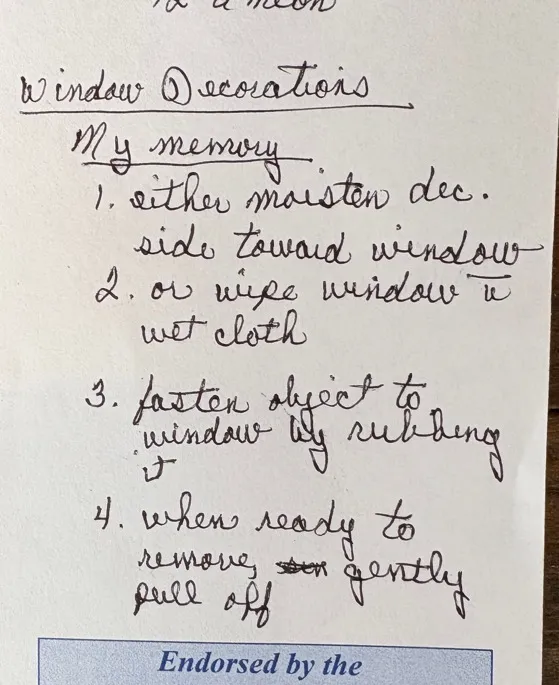 Window Decorations
My memory
1. either moisten dec.
side toward window
2. or wipe window w̅
wet cloth
3. fasten object to
window by rubbing
it
4. when ready to
remove, gently
pull off
Endorsed by the